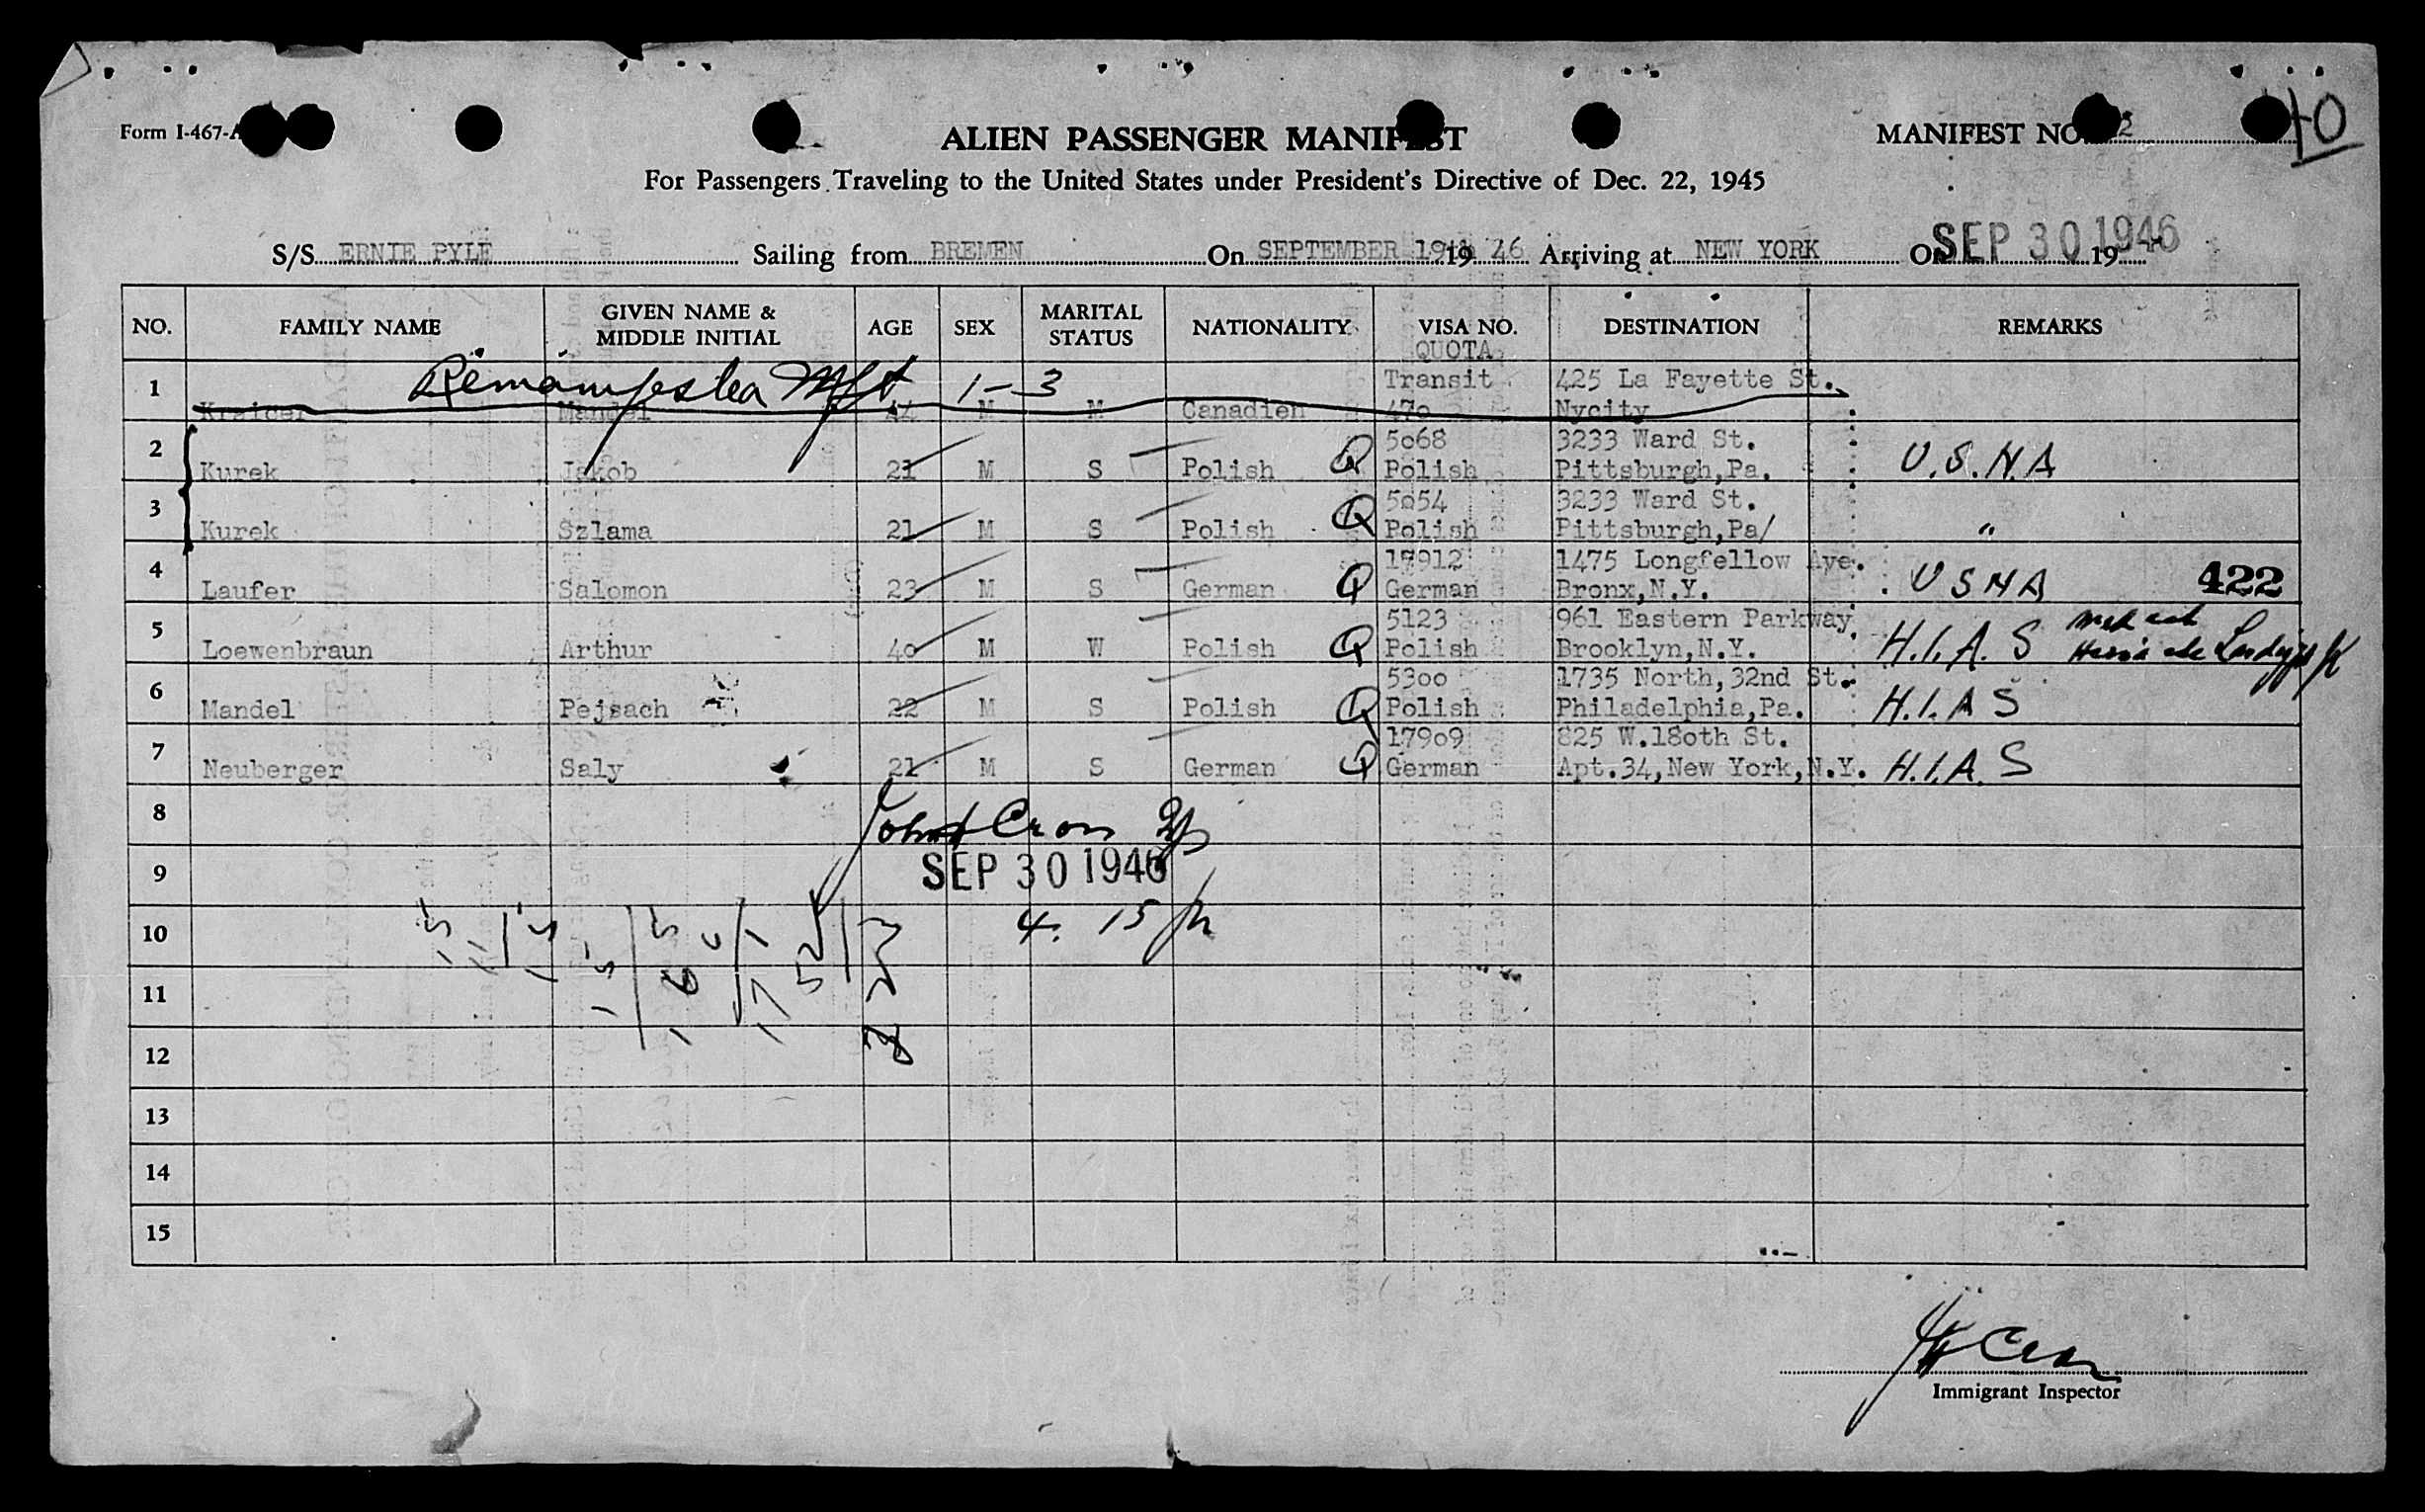 Form I-467-A
ALIEN PASSENGER MANIFEST
MANIFEST NO. 2
10
For Passengers Traveling to the United States under President's Directive of Dec. 22, 1945
S/S ERNIE PYLE Sailing from BREMEN On SEPTEMBER 19th 19 46 Arriving at NEW YORK On SEP 30 1946 19
NO. FAMILY NAME GIVEN NAME & MIDDLE INITIAL AGE SEX MARITAL STATUS NATIONALITY VISA NO. QUOTA DESTINATION REMARKS
1 Kraicer Mandel 44 M M Canadien Transit 470 425 La Fayette St. Nycity
1-3
2 Kurek Jakob 21 M S Polish Q 5068 Polish 3233 Ward St. Pittsburgh,Pa. U.S.N.A
3 Kurek Szlama 21 M S Polish Q 5054 Polish 3233 Ward St. Pittsburgh,Pa/ "
4 Laufer Salomon 23 M S German Q 17912 German 1475 Longfellow Ave. Bronx,N.Y. U S N A 422
5 Loewenbraun Arthur 40 M W Polish Q 5123 Polish 961 Eastern Parkway Brooklyn,N.Y. H.I.A. S
6 Mandel Pejsach 22 M S Polish Q 5300 Polish 1735 North,32nd St. Philadelphia,Pa. H.I.A S
7 Neuberger Saly 21 M S German Q 17909 German 825 W.180th St. Apt.34,New York,N.Y. H.I.A. S
8
9 SEP 30 1946
10 4. 15
11
12
13
14
15
Immigrant Inspector